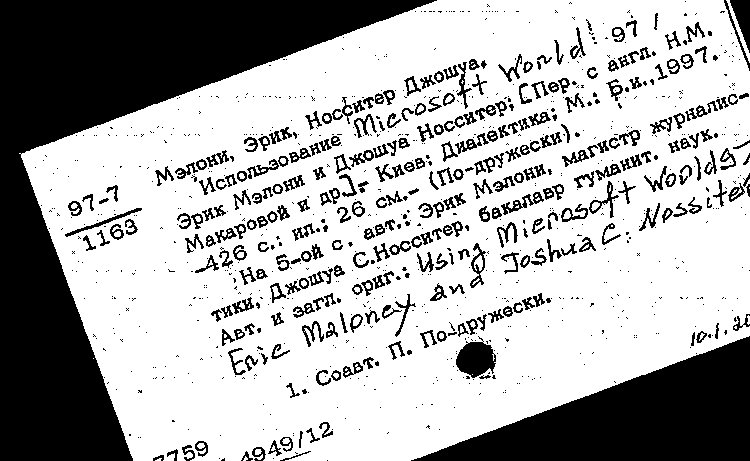 97-7
1163
Мэлони, Эрик, Носситер Джошуа.
Использование Microsoft World 97 /
Эрик Мэлони и Джошуа Носситер; [Пер. с англ. Н.М.
Макаровой и др].- Киев; Диалектика; М.: Б.и.,1997.
-426 с.: ил.; 26 см.- (По-дружески).
На 5-ой с. авт.: Эрик Мэлони, магистр журналис-
тики, Джошуа С.Носситер, бакалавр гуманит. наук.
Авт. и загл. ориг.: Using Microsoft World97
Eric Maloney and Joshua C. Nossiter
1. Соавт. П. По-дружески.
10.1.20
7759
4949/12